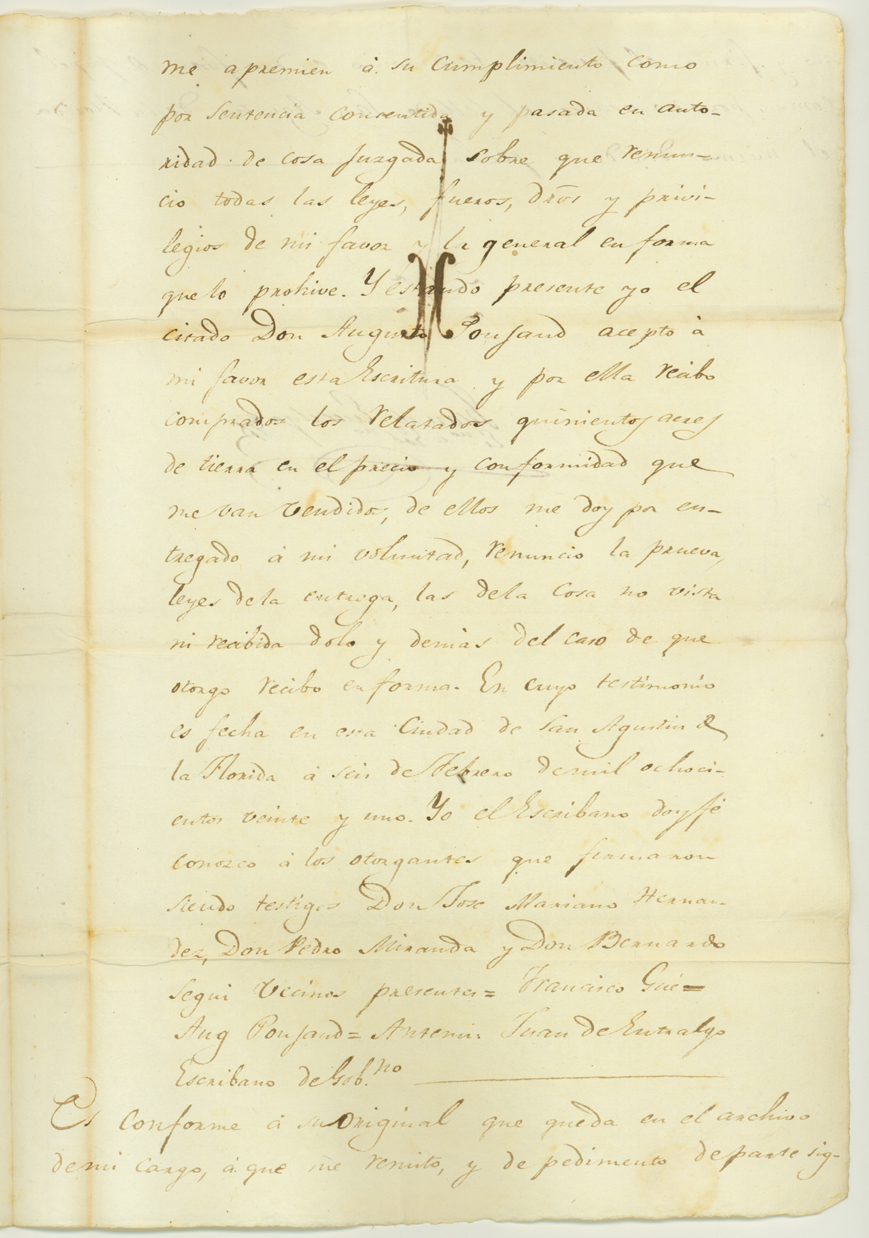 me apremien à su cumplimiento como
por sentencia consentida y pasada en auto-
ridad de cosa juzgada sobre que renun-
cio todas las leyes, fueros, dros y privi-
legios de mi favor y la general en forma
que lo prohive. Y estando presente yo el
citado Don Augusto Ponjaud acepto à
mi favor esta Escritura y por ella recibo
comprados los relatados quinientos acres
de tierra en el precio y conformidad que
me van vendidos, de ellos me doy por en-
tregado à mi voluntad, renuncio la prueva,
leyes de la entrega, las dela cosa no vista
ni recibida dolo y demas del caso de que
otorgo recibo en forma. En cuyo testimonio
es fecha en esta Ciudad de San Agustin de
la Florida à seis de Febrero de mil ochoci-
entos veinte y uno. Yo el Escribano doy fé
conozco à los otorgantes que firmaron
siendo testigos Don Jose Mariano Hernan-
dez, Don Pedro Miranda y Don Bernardo
Segui Vecinos presentes = Francisco Gué =
Aug Ponjaud = Antemi. Juan de Entralgo
Escribano de Gob.no
Es conforme à su original que queda en el archivo
de mi cargo, à que me remito, y de pedimento de parte sig-